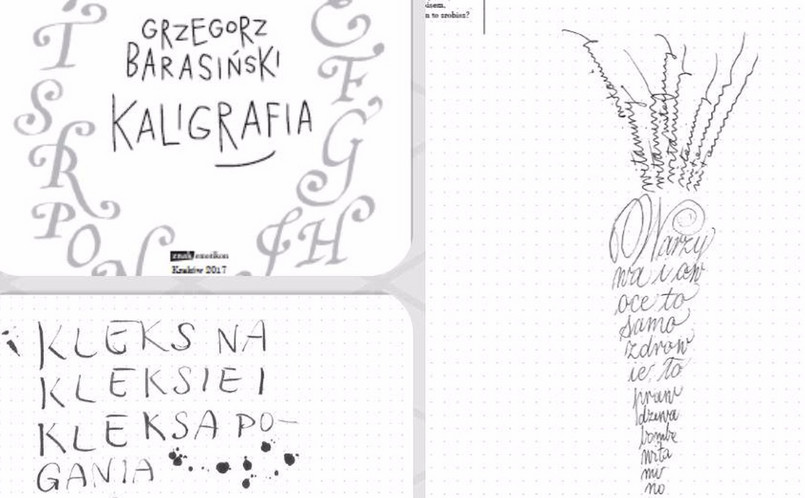 GRZEGORZ
BARASIŃSKI
KALIGRAFIA
T
S
R
P
O
N
C
F
G
H
J
znak emotikon
Kraków 2017
KLEKS NA
KLEKSIE I
KLEKSA PO-
GANIA
n to zrobisz?
witaminy
witaminy
witaminy
Warzy
wa i ow
oce to
samo
zdrow
ie, to
praw
dziwa
bomba
wita
mi
no